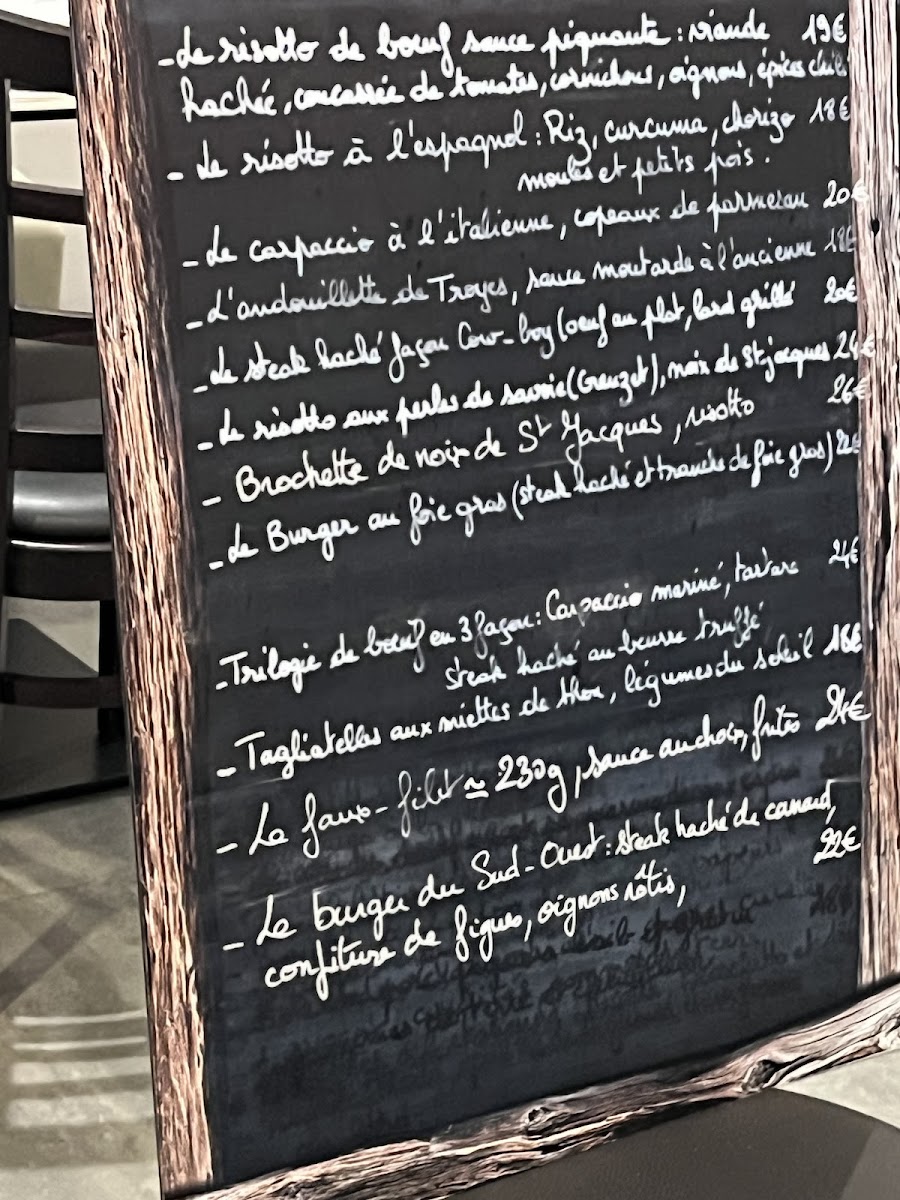 - Le risotto de bœuf sauce piquante : viande 19€
hachée, concassée de tomates, cornichons, oignons, épices chili
- Le risotto à l'espagnol : Riz, curcuma, chorizo 18€
moules et petits pois.
- Le carpaccio à l'italienne, copeaux de parmesan 20€
- L'andouillette de Troyes, sauce moutarde à l'ancienne 18€
- Le steak haché façon Cow-boy (oeuf au plat, lard grillé 20€
- Le risotto aux perles de savoie (Creuzet), noix de St jacques 24€
- Brochette de noix de St Jacques, risotto 26€
- Le Burger au foie gras (steak haché et tranche de foie gras) 22€
- Trilogie de bœuf en 3 façon : Carpaccio mariné, tartare 24€
steak haché au beurre truffé
- Tagliatelles aux miettes de thon, légumes du soleil 16€
- Le faux-filet ≃ 230g, sauce au choix, frites 24€
- Le burger du Sud-Ouest : steak haché de canard,
confiture de figues, oignons rôtis, 22€